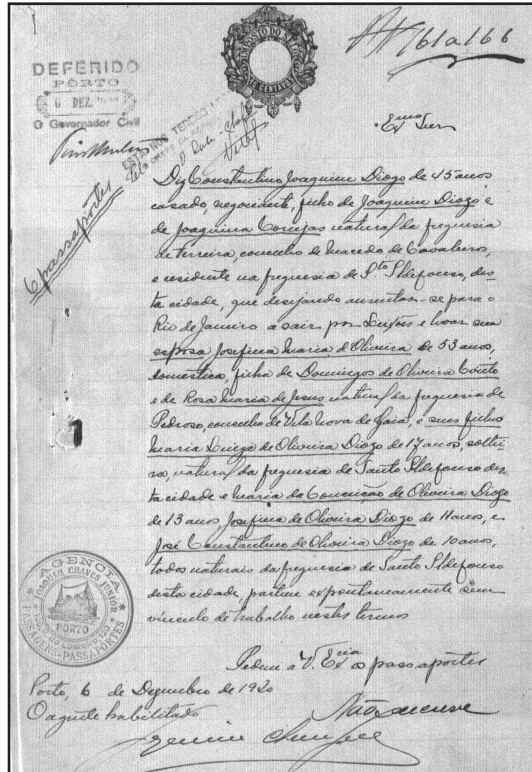 Nº 161 a 166
IMPOSTO DO SELO
DEFERIDO
PÔRTO
6 DEZ.
O Governador Civil
ESTÁ NOS TERMOS
6 passaportes
Exmo Snr
Diz Constantino Joaquim Diogo de 45 anos
casado, negociante, filho de Joaquim Diogo e
de Joaquina Cornejas natural da freguesia
de Ferreira, concelho de Macedo de Cavaleiros,
e residente na freguesia de Sto Ildefonso, des-
ta cidade, que desejando ausentar-se para o
Rio de Janeiro a sair por Leixões e levar sua
esposa Josefina Maria d'Oliveira de 53 anos,
domestica, filha de Domingos de Oliveira Couto
e de Rosa Maria de Jesus natural da freguesia de
Pedroso, concelho de Vila Nova de Gaia, e seus filhos
Maria Luiza de Oliveira Diogo de 17 anos, soltei-
ra, natural da freguesia de Santo Ildefonso des-
ta cidade e Maria da Conceição de Oliveira Diogo
de 13 anos, Josefina de Oliveira Diogo de 11 anos, e
José Constantino de Oliveira Diogo de 10 anos,
todos naturais da freguesia de Santo Ildefonso
desta cidade, partem espontaneamente sem
vinculo de trabalho nestes termos
Pedem a V. Exia os passaportes
AGENCIA
JOAQUIM CHAVES JUNIOR
PORTO
PASSAGENS-PASSAPORTES
Porto, 6 de Dezembro de 1920
O agente habilitado
Não escreve